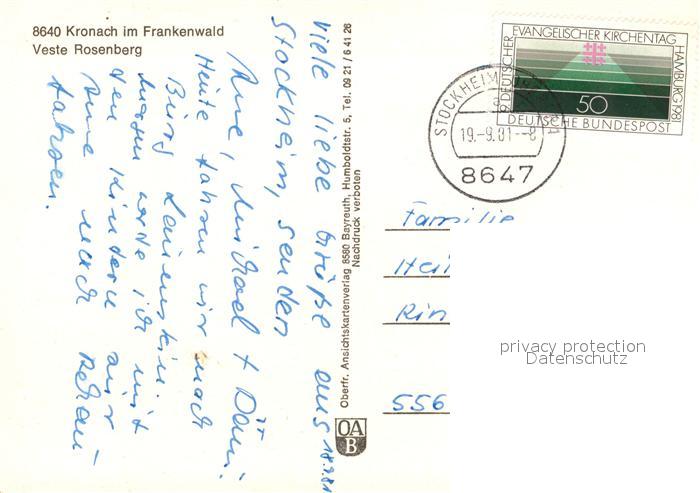 8640 Kronach im Frankenwald
Veste Rosenberg
18.9.81
Viele liebe Grüße aus
Stockheim, senden
Anne, Michael + Däni.
Heute fahren wir nach
Burg Lauenstein.
Morgen werde ich mit
den Kindern mir
Anne nach Rehau-
fahren.
Oberfr. Ansichtskartenverlag 8580 Bayreuth, Humboldtstr. 5, Tel. 09 21 / 6 41 26
Nachdruck verboten
OA
B
19. DEUTSCHER EVANGELISCHER KIRCHENTAG HAMBURG 1981
50
DEUTSCHE BUNDESPOST
STOCKHEIM
19.-9.81--8
8647
Familie
Hei
Rin
556
privacy protection
Datenschutz